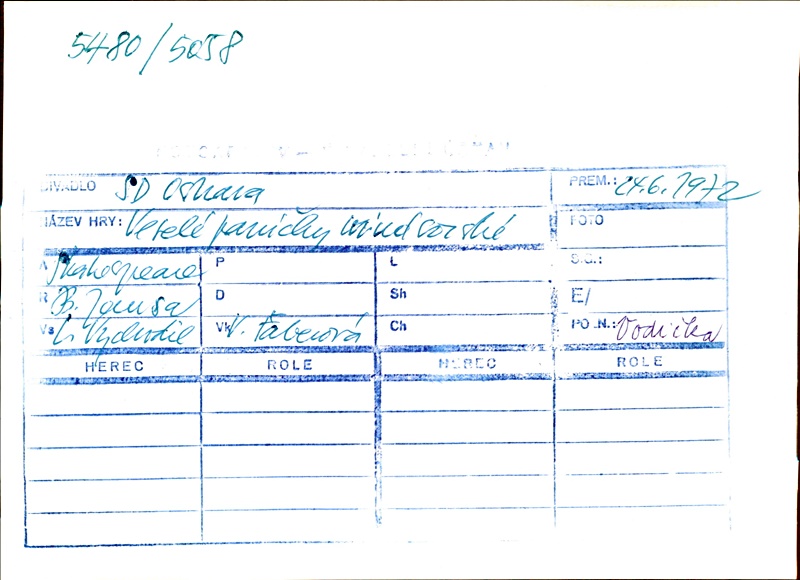 5480/5058
DIVADLO SD Ostrava PREM.: 24.6.1972
NÁZEV HRY: Veselé paničky windsorské FOTO
A Shakespeare P L S.G.:
R B. Jansa D Sh E/
Vs L. Vychodil Vk V. Fáberová Ch PO.N.: Vodička
HEREC ROLE HEREC ROLE